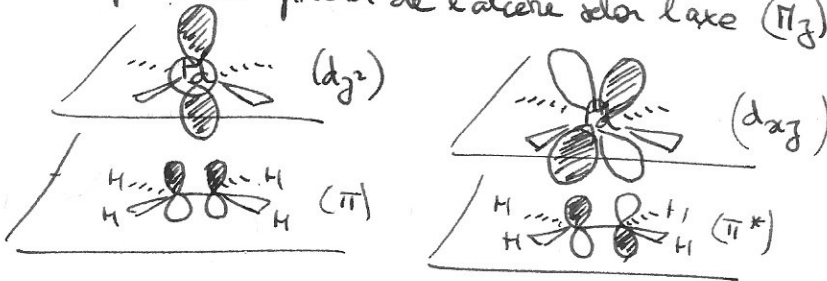 de l'alcène selon l'axe (πz)
Pd (dz²)
Pd (dxz)
H H H H (π)
H H H H (π*)